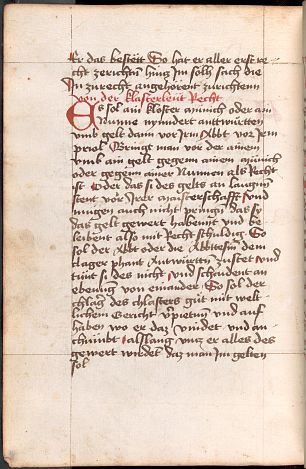 Er das besteit So hat er aller erst re
cht zerichtn hincz Im solh sich die
In zurecht angehorent zurichtenn
Von der klasterleut Recht
Es sol ain kloster münich oder ain
Nunne nyndert anttwürtten
vmb gelt dann vor Irm Abbt vor Irm
priol Bringt man vor der ainem
vmb ain gelt gegem ainem münich
oder gegem ainer Nunnen als Recht
ist Oder das si des gelts an laugnn
stent vor Irer maisterschafft vnd
mugen auch nicht pringn das sy
das gelt gewert habennt vnd be
leibent also mit Recht schuldig So
sol der Abbt oder die Abbtessin dem
klager phant Antwürtn zustet vnd
tünt si des nicht vnd schaident an
ebenung von einander So sol der
chlager des chlosters güt mit welt
lichem Gericht verpietnn vnd auf
haben wo er daz vindet vnd an
chumbt alslang vncz er alles des
gewert wirdet daz man Im gelten
sol